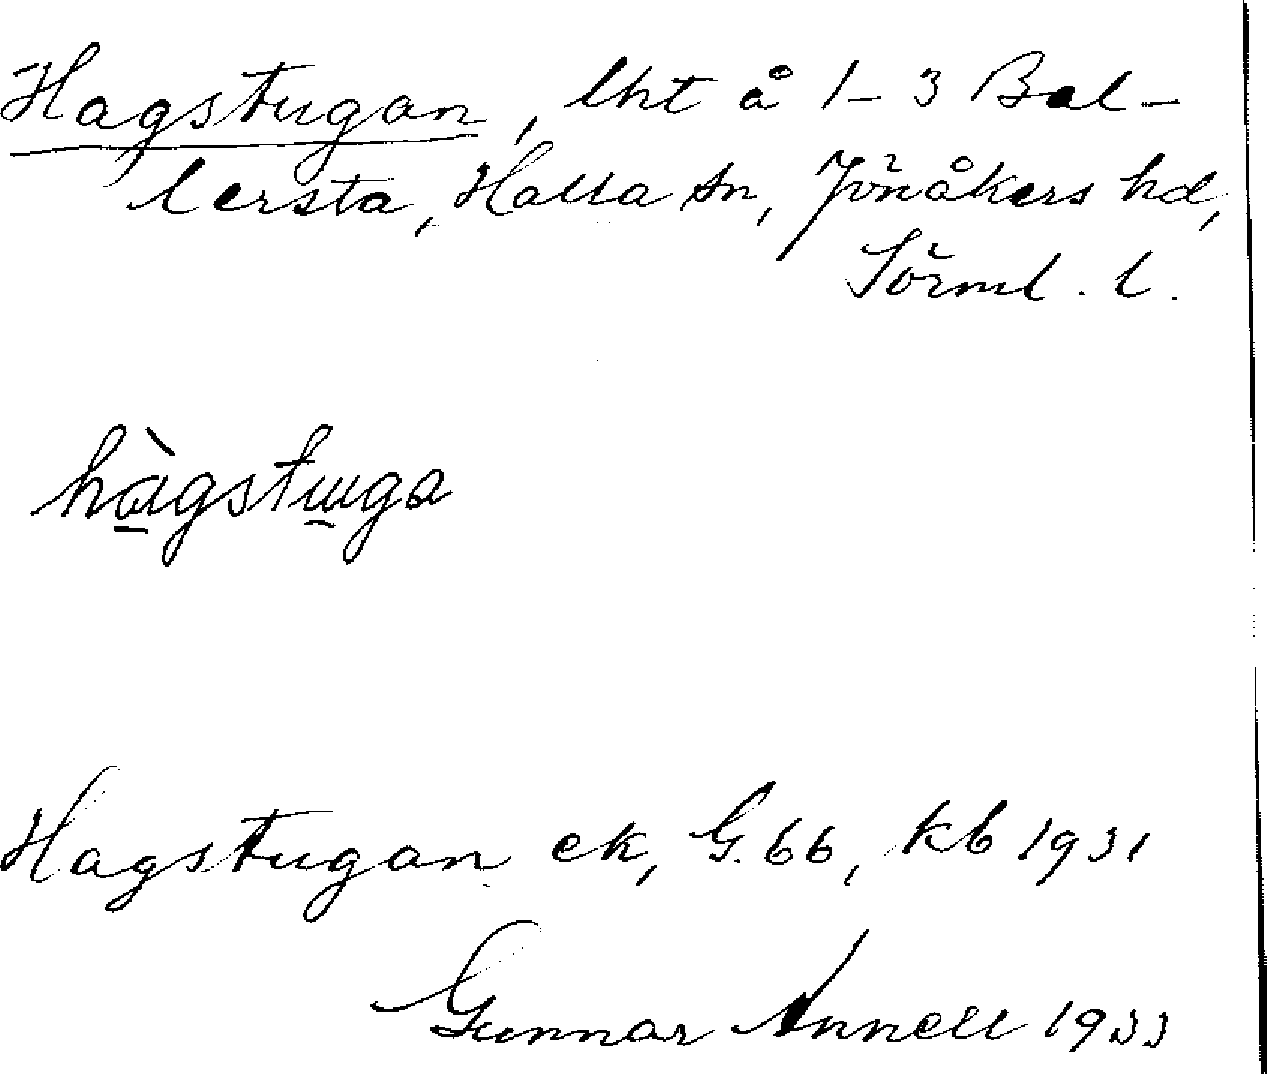 Hagstugan, lht å 1-3 Bal-
lersta, Halla sn, Jönåkers hd,
Sörml. l.
hàgstuga
Hagstugan ek, G. 66, kb 1931
Gunnar Annell 1933